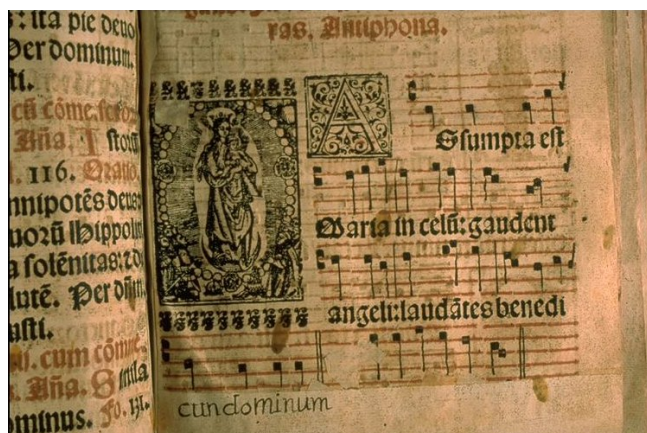 s: ita pie deuo
Per dominum.
sti.
cū cōme.
Aña. I storū
. 116. Oratio.
nnipotēs deus
uorū Hippoli
a solēnitas:
lutē. Per dn̄m.
usti.
cum cōme.
. Aña. S imila
ominus. Fo.
ras. Antiphona.
A Ssumpta est
Maria in celū: gaudent
angeli: laudātes benedi
cundominum